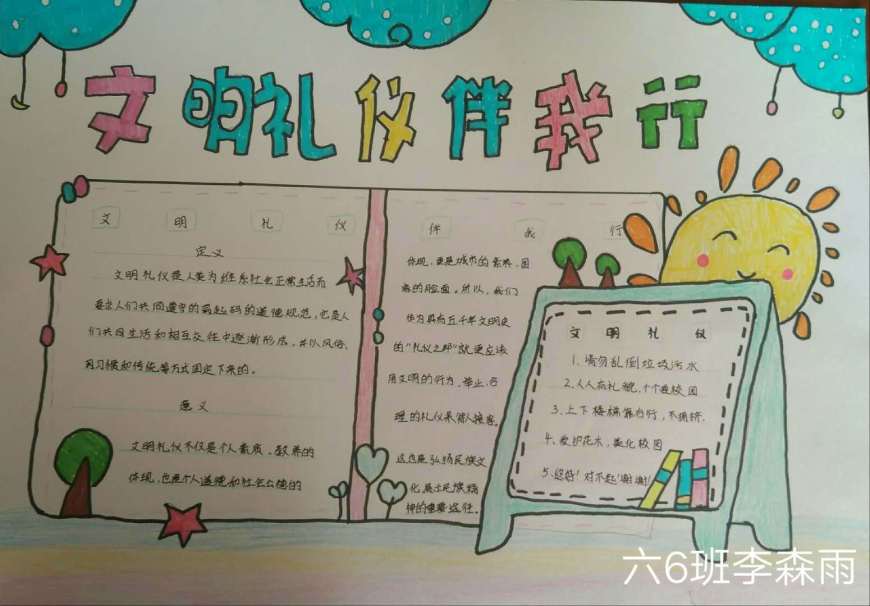 文明礼仪伴我行
文明礼仪
定义
文明礼仪是人类为维系社会正常生活而
要求人们共同遵守的最起码的道德规范,它是人
们共同生活和相互交往中逐渐形成,并以风俗、
习惯和传统等方式固定下来的。
意义
文明礼仪不仅是个人素质、教养的
体现,也是个人道德和社会公德的
伴我行
体现,更是城市的素养、国
家的脸面。所以,我们
作为具有五千年文明史
的“礼仪之邦”就更应该
用文明的行为、举止,合
理的礼仪来待人接客。
这也是弘扬民族文
化、展示民族精
神的重要途径。
文明礼仪
1.请勿乱倒垃圾污水
2.人人有礼貌,个个爱校园
3.上下楼梯靠右行,不拥挤.
4.爱护花木,美化校园
5.您好!对不起!谢谢!
六6班李森雨